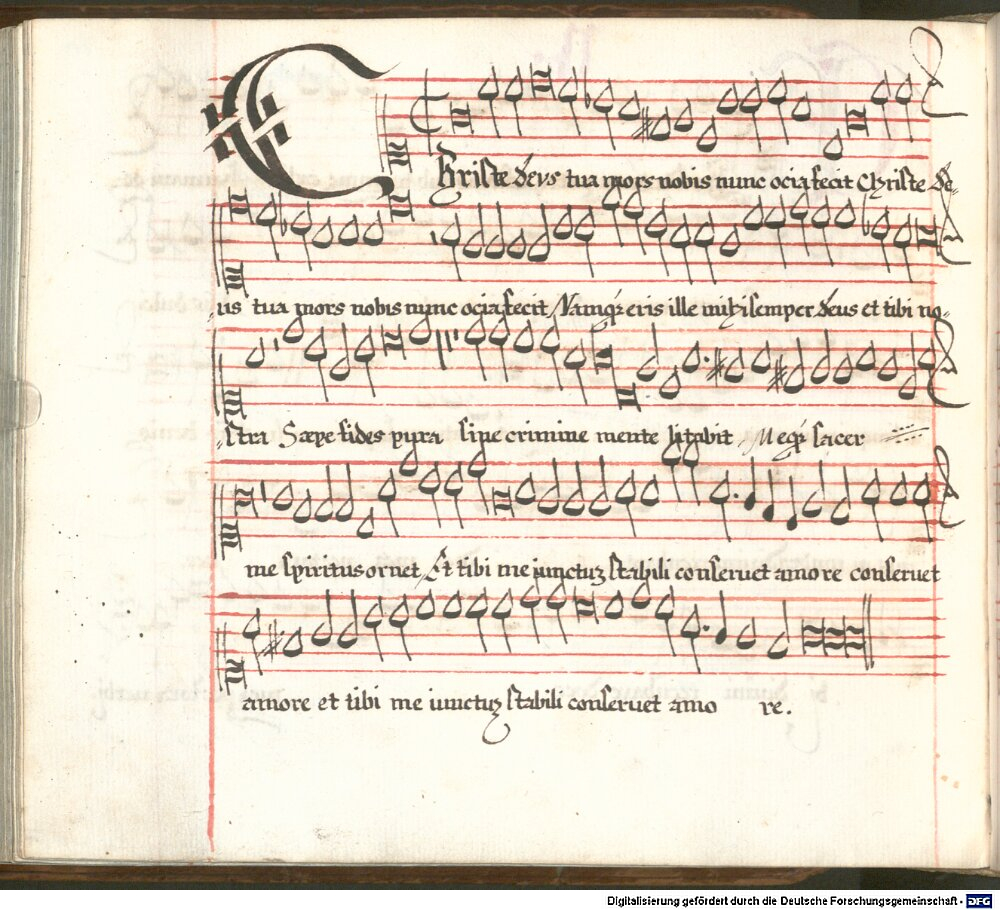 Christe deus tua mors nobis nunc ocia fecit Christe de-
us tua mors nobis nunc ocia fecit Namq; eris ille mihi semper deus et tibi no-
stra Sæpe fides pura sine crimine mente litabit Meq; sacer
me spiritus ornet Et tibi me iunctuz stabili conseruet amore conseruet
amore et tibi me iunctuz stabili conseruet amo re.
Digitalisierung gefördert durch die Deutsche Forschungsgemeinschaft - DFG